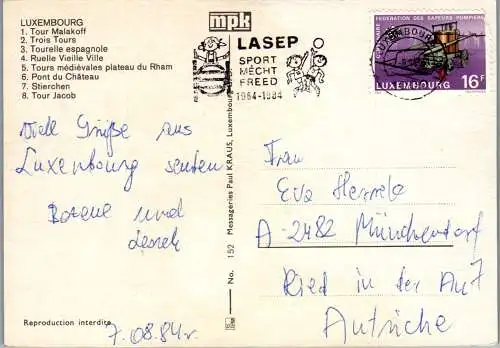 LUXEMBOURG
1. Tour Malakoff
2. Trois Tours
3. Tourelle espagnole
4. Ruelle Vieille Ville
5. Tours médiévales plateau du Rham
6. Pont du Château
7. Stierchen
8. Tour Jacob
mpk
LASEP
SPORT
MÉCHT
FREED
1964-1984
LUXEMBOURG
FEDERATION DES SAPEURS POMPIERS
LUXEMBOURG 16F
Viele Grüße aus
Luxembourg senden
Bozena und
Leszek
7.08.84r.
Reproduction interdite
No. 152 Messageries Paul KRAUS, Luxembourg
Frau
Eva
A-2482 Münchendorf
Ried in der Au 7
Autriche